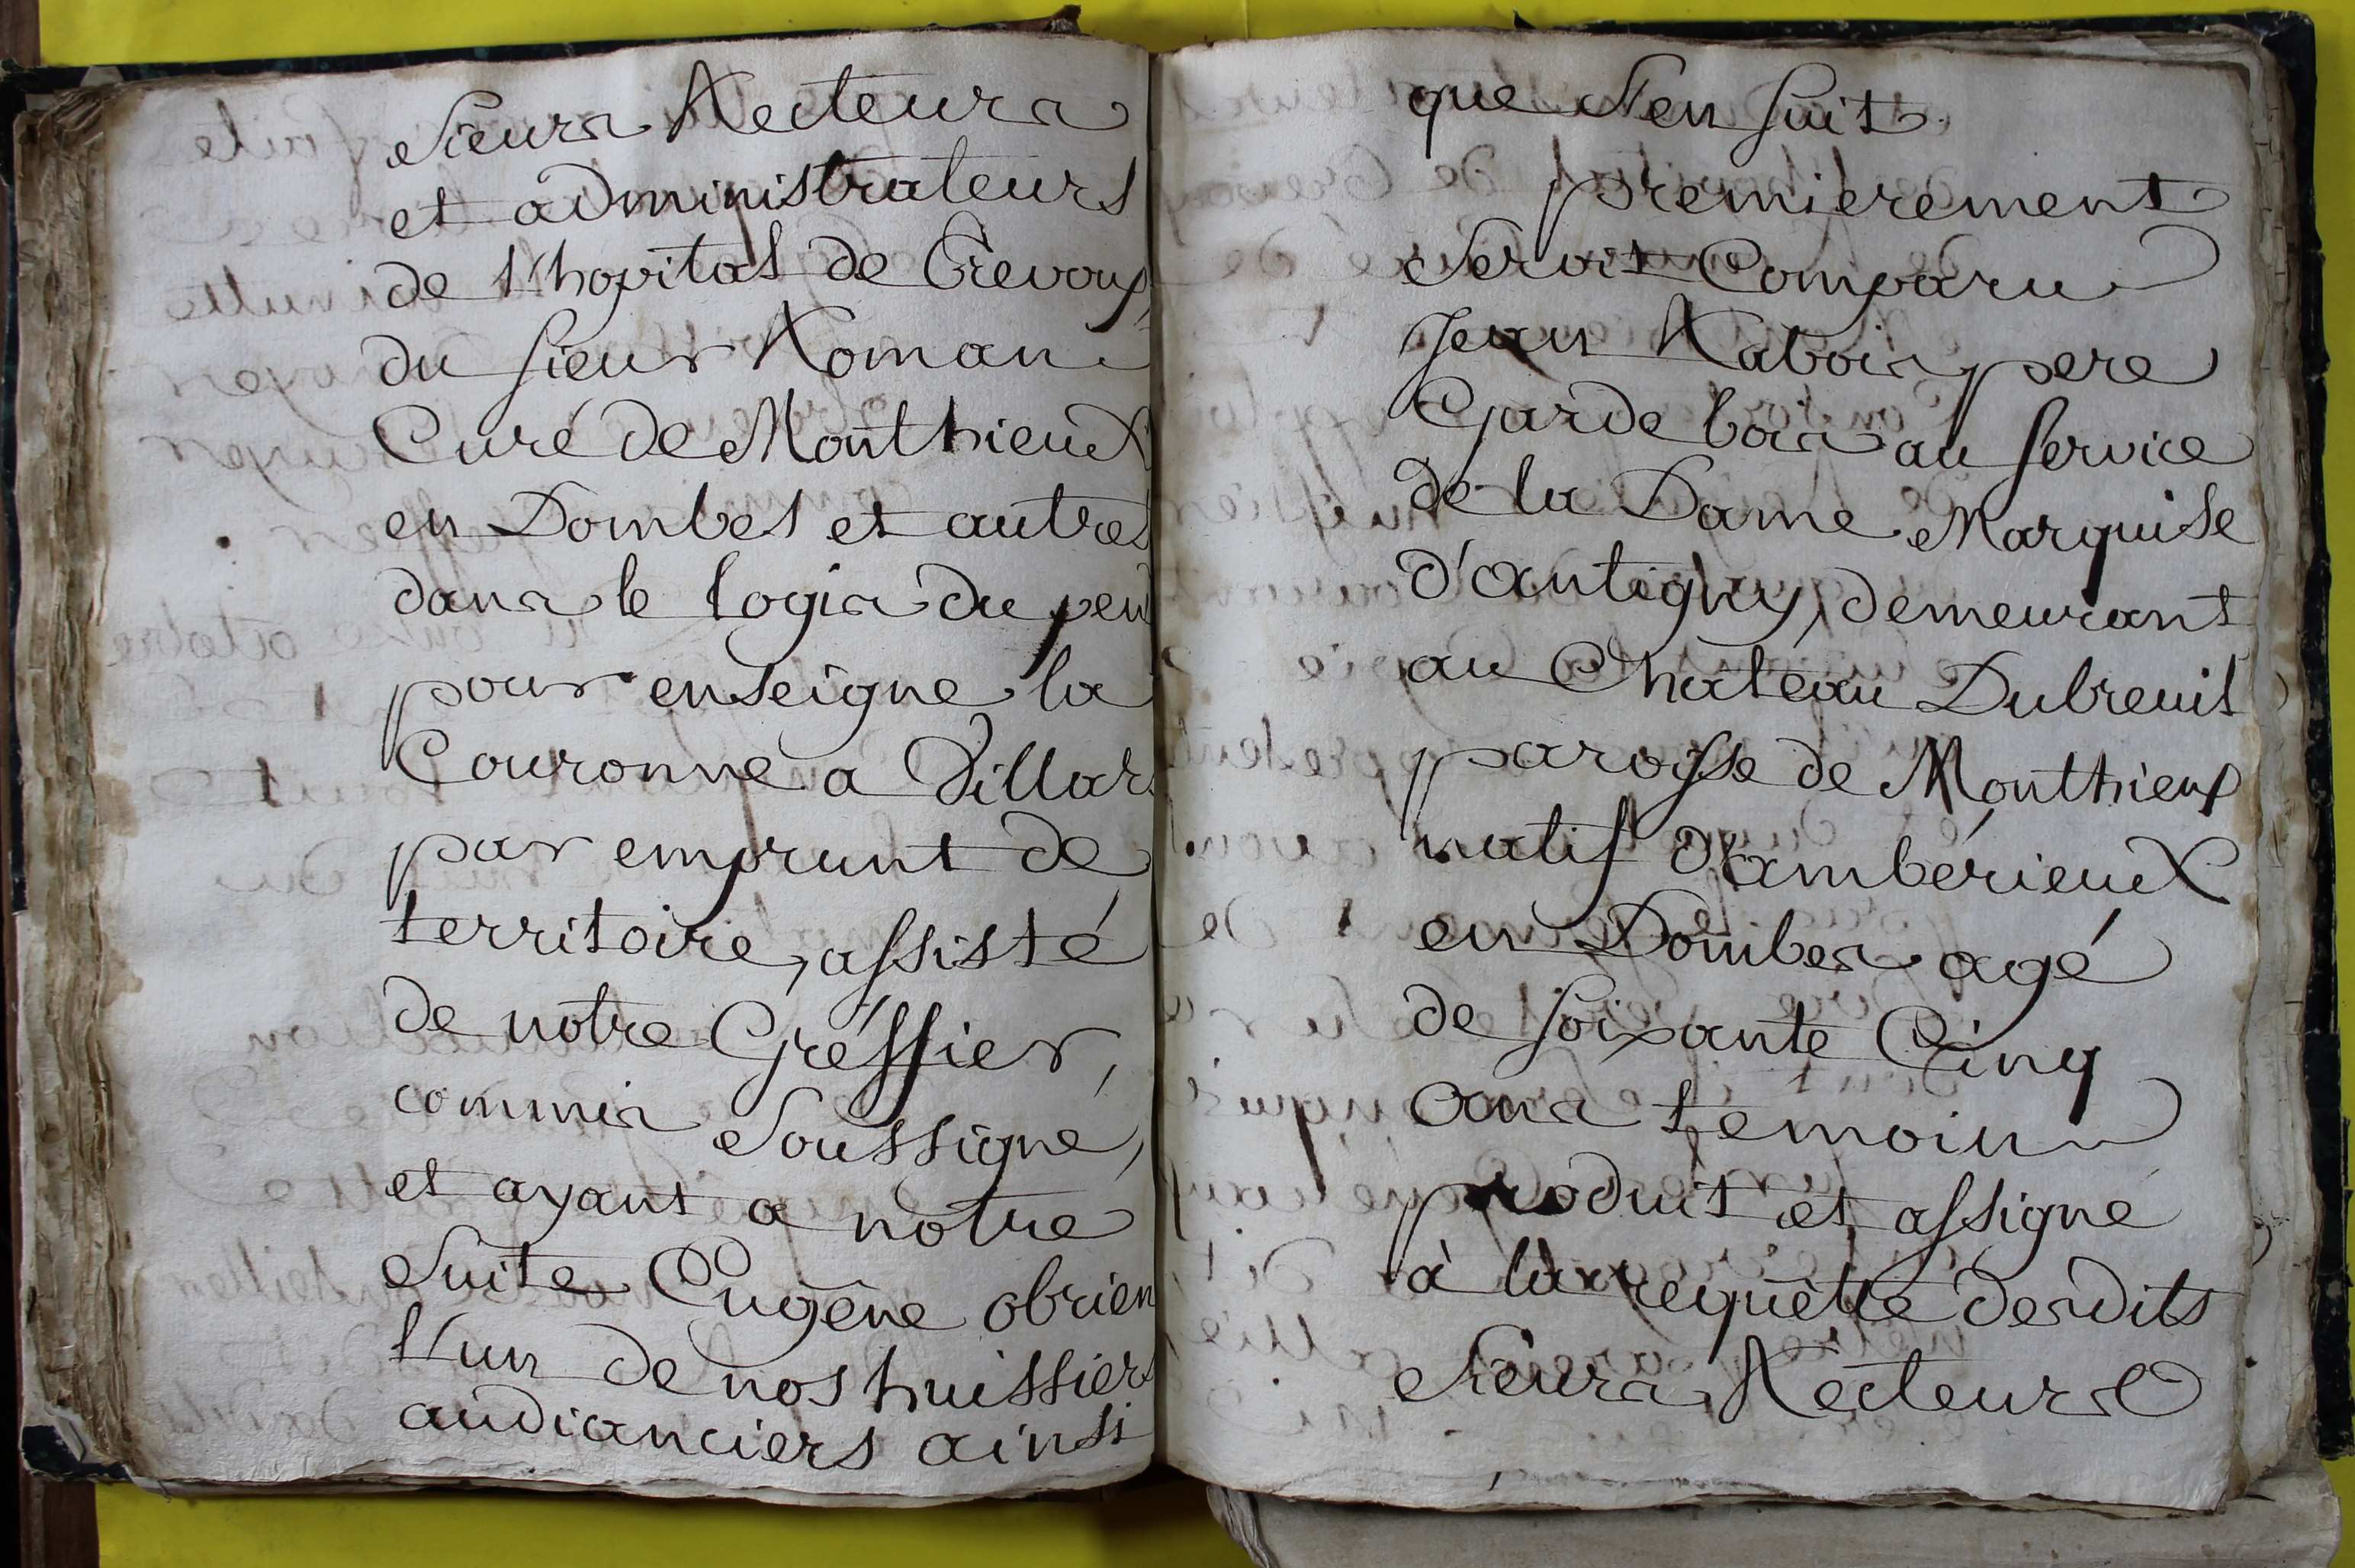 Sieurs Recteurs
et administrateurs
de l'hopital de Trevoux,
du sieur Roman
Curé de Monthieux
en Dombes et autres
dans le logis du pend
pour enseigne la
Couronne a Villars
par emprunt de
territoire, assisté
de notre Gréffier,
commis Soussigné,
et ayant a notre
Suite Eugêne obrien
l'un de nos huissiers
audianciers ainsi
que s'en suit
premierement
Seroit Comparu
Jean Rabois pere
Garde bois au service
de la Dame Marquise
d'antigny, demeurant
au Chateau Dubreuil
paroisse de Monthieux
natif d'ambérieux
en Dombes agé
de soixante Cinq
ans temoin
produit et assigné
à la requête desdits
Sieurs Recteurs